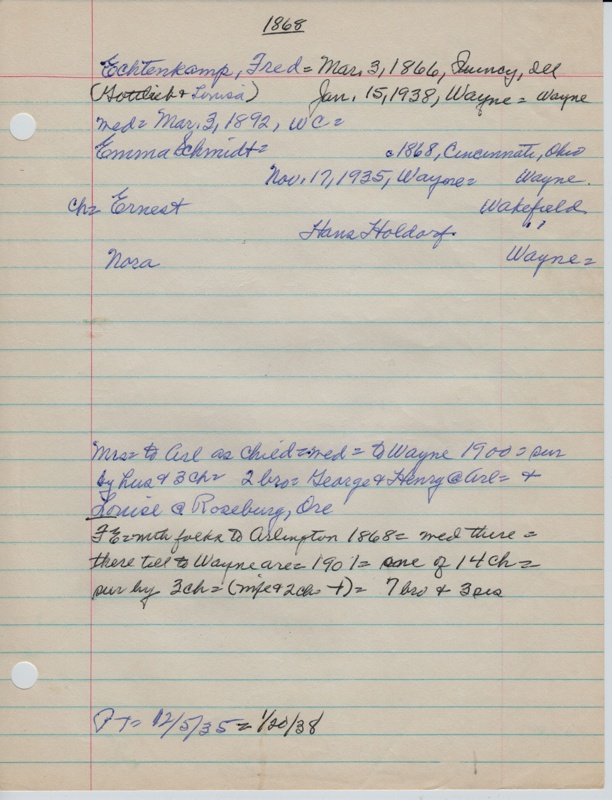 1868
Echtenkamp, Fred = Mar. 3, 1866, Quincy, Ill
(Gottlieb & Louisa) Jan. 15, 1938, Wayne = Wayne
med = Mar. 3, 1892, WC =
Emma Schmidt = c1868, Cincinnati, Ohio
Nov. 17, 1935, Wayne = Wayne.
ch = Ernest Wakefield
Hans Holdorf. "
Nora Wayne =
Mrs = to Arl as child = med = to Wayne 1900 = sur
by hus & 3 ch = 2 bro = George & Henry @ Arl = &
Louise @ Roseburg, Ore
FE = with folks to Arlington 1868 = med there =
there till to Wayne are = 1901 = one of 14 ch =
sur by 3 ch = (wife & 2 ch = +) = 7 bro & 3 sis
PT = 12/5/35 = 1/20/38